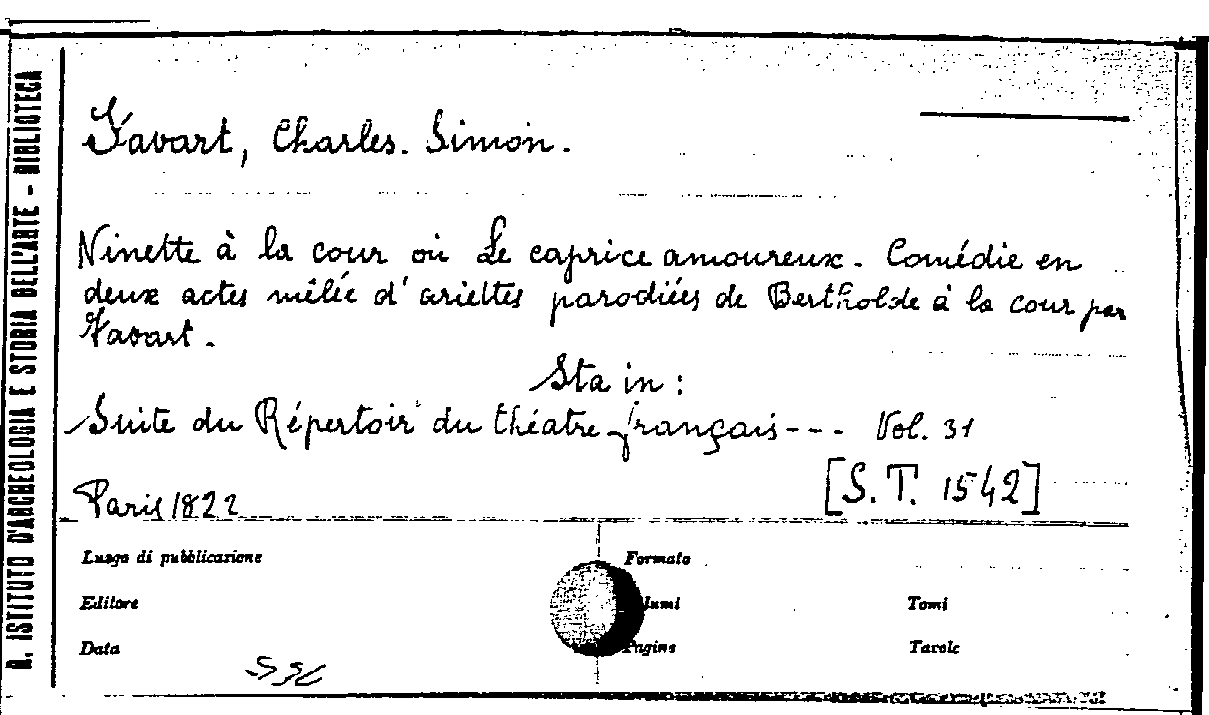 R. ISTITUTO D'ARCHEOLOGIA E STORIA DELL'ARTE - BIBLIOTECA
Favart, Charles. Simon.
Ninette à la cour où Le caprice amoureux. Comédie en
deux actes mêlée d'ariettes parodiées de Bertholde à la cour par
Favart.
Sta in:
Suite du Répertoir du théatre français--- Vol. 31
[S.T. 1542]
Paris 1822
Luogo di pubblicazione
Formato
Editore
lumi
Tomi
Data
Pagine
Tavole